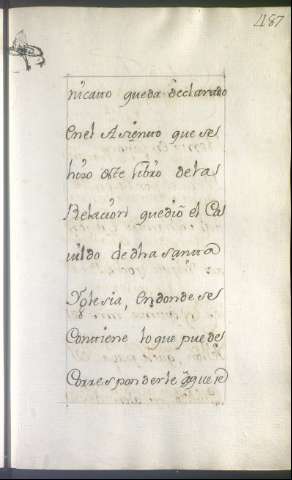 487
nicatto queda declarado
en el Asientto que se
hizo este libro de las
Relación que dio el Ca
vildo de dha santta
Yglesia, en donde se
Conttiene lo que puede
Corresponderle